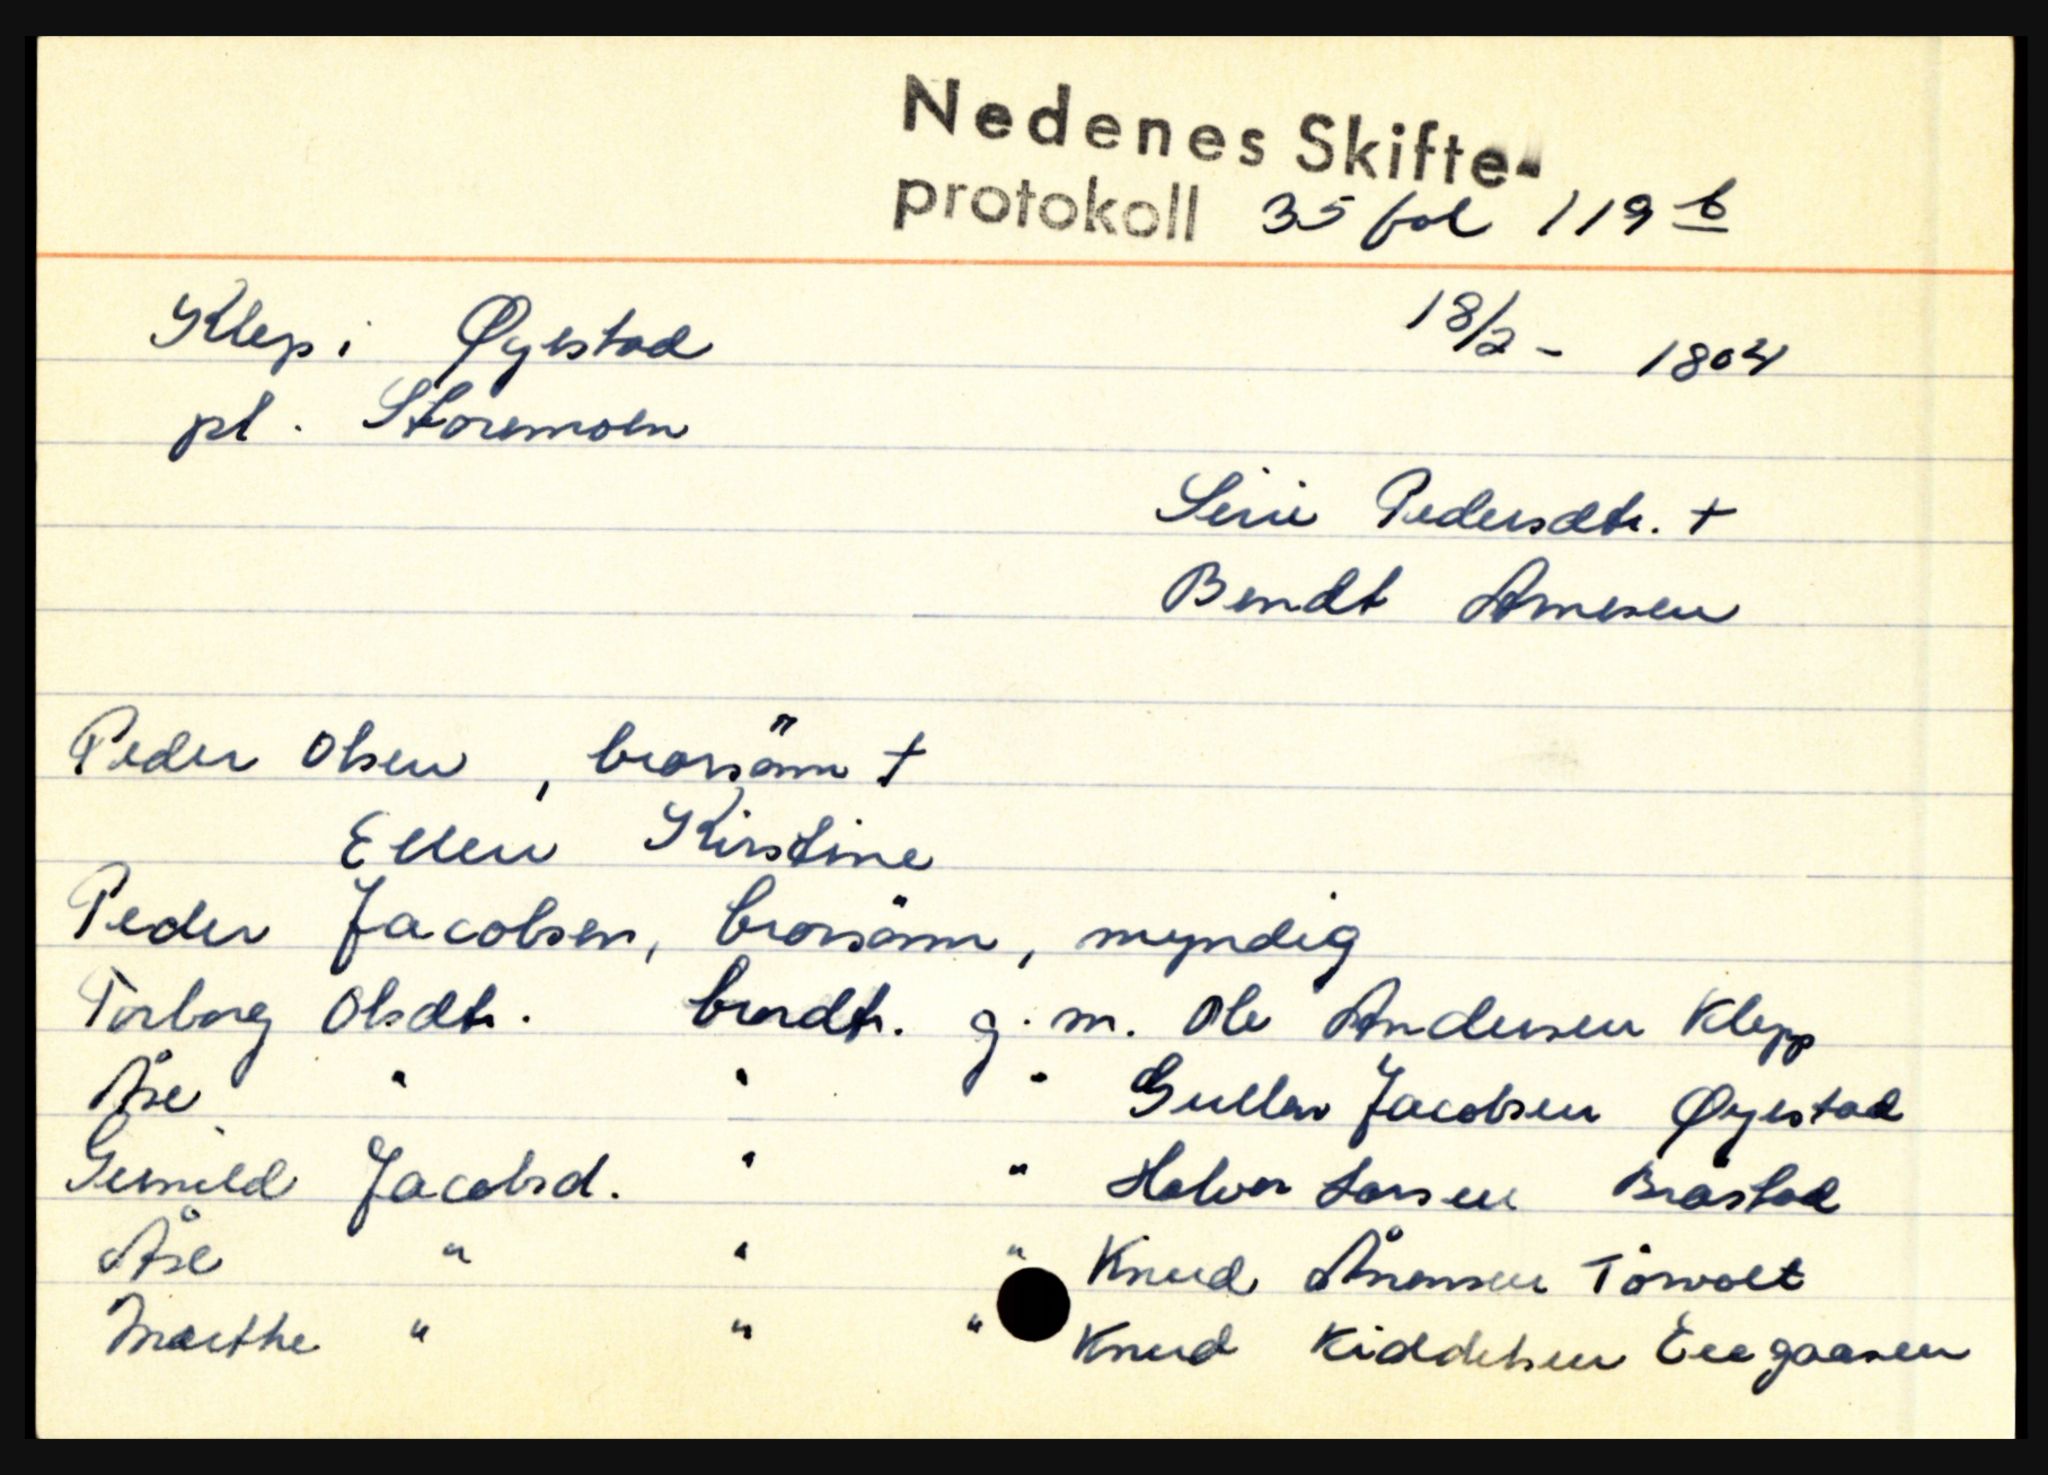 Nedenes Skifte-
protokoll 35 fol 119 b
Klep i Øyestad 18/2 - 1804
pl. Storemoen
Siri Pedersdtr. +
Bendt Arnesen
Peder Olsen, brorsønn +
Ellen Kirstine
Peder Jacobsen, brorsønn, myndig
Torborg Olsdtr. brordtr. g. m. Ole Andersen Klepp
Åse " " " Gullov Jacobsen Øyestad
Gunild Jacobsd. " " Halvor Larsen Bråstad
Åse " " " Knud Ånonsen Torvolt
Marthe " " " Knud Kiddelsen Eeegaasen